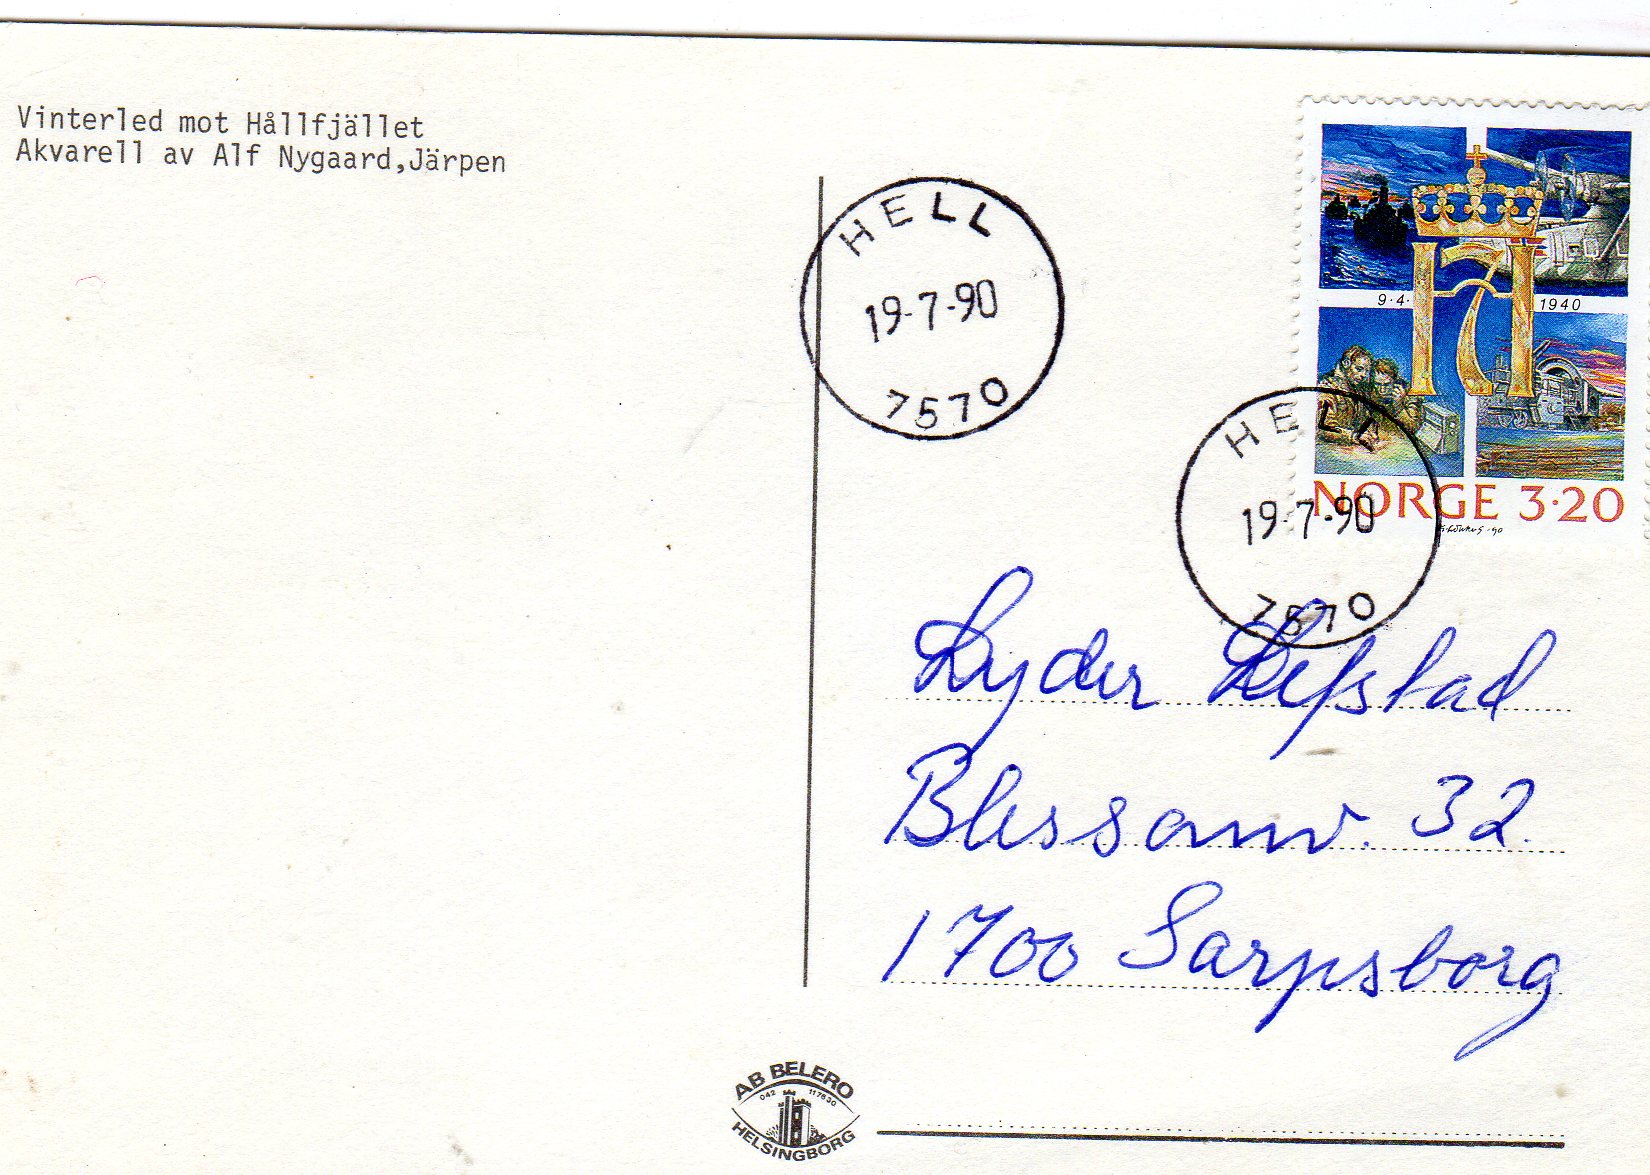 Vinterled mot Hållfjället
Akvarell av Alf Nygaard,Järpen
HELL
19-7-90
7570
9·4·1940
NORGE 3·20
HELL
19-7-90
7570
Lyder Lefstad
Blessomv. 32.
1700 Sarpsborg
AB BELERO
042 117630
HELSINGBORG